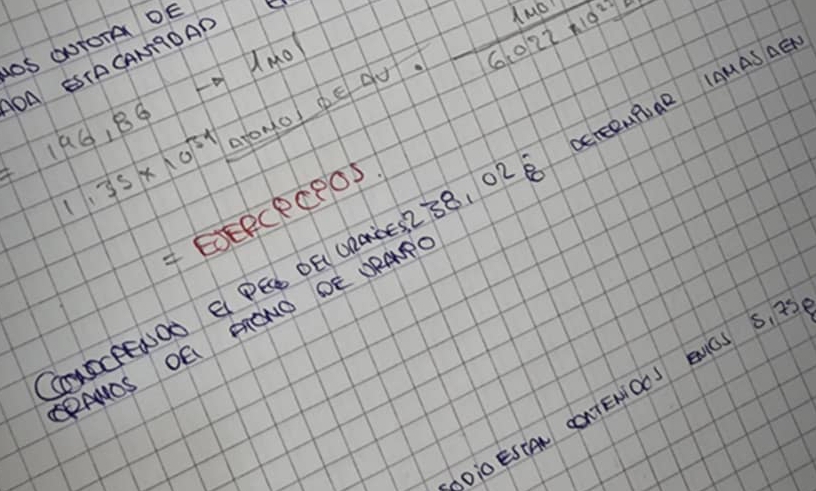 MOS CATOTAL DE
ADA ESTA CANTIDAD
= 196,86 → 1 MOl
1.35 x 10 ATOMOS DE AU . 1 MOl
6,022 x 10
= EJERCICIOS.
CONOCIENDO El PESO DEl URANIO ES 238,02 g DETERMINAR lA MASA EN
GRAMOS DEl ATOMO DE URANIO
SODIO ESTAN CONTENIDOS EN lOS 5,75 g